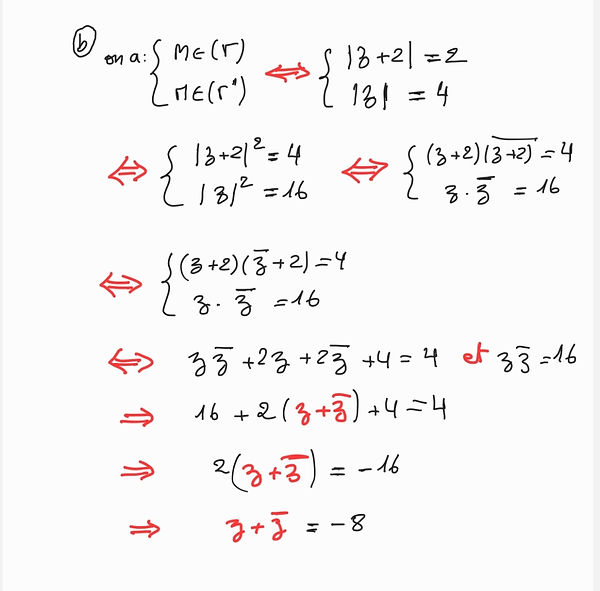 b on a: { M∈(Γ) ⇔ { |z+2| = 2
M∈(Γ') |z| = 4
⇔ { |z+2|² = 4 ⇔ { (z+2)(\overline{z+2}) = 4
|z|² = 16 z · z̄ = 16
⇔ { (z+2)(z̄+2) = 4
z · z̄ = 16
⇔ z z̄ + 2z + 2z̄ + 4 = 4 et z z̄ = 16
⇒ 16 + 2(z + z̄) + 4 = 4
⇒ 2(z + z̄) = -16
⇒ z + z̄ = -8